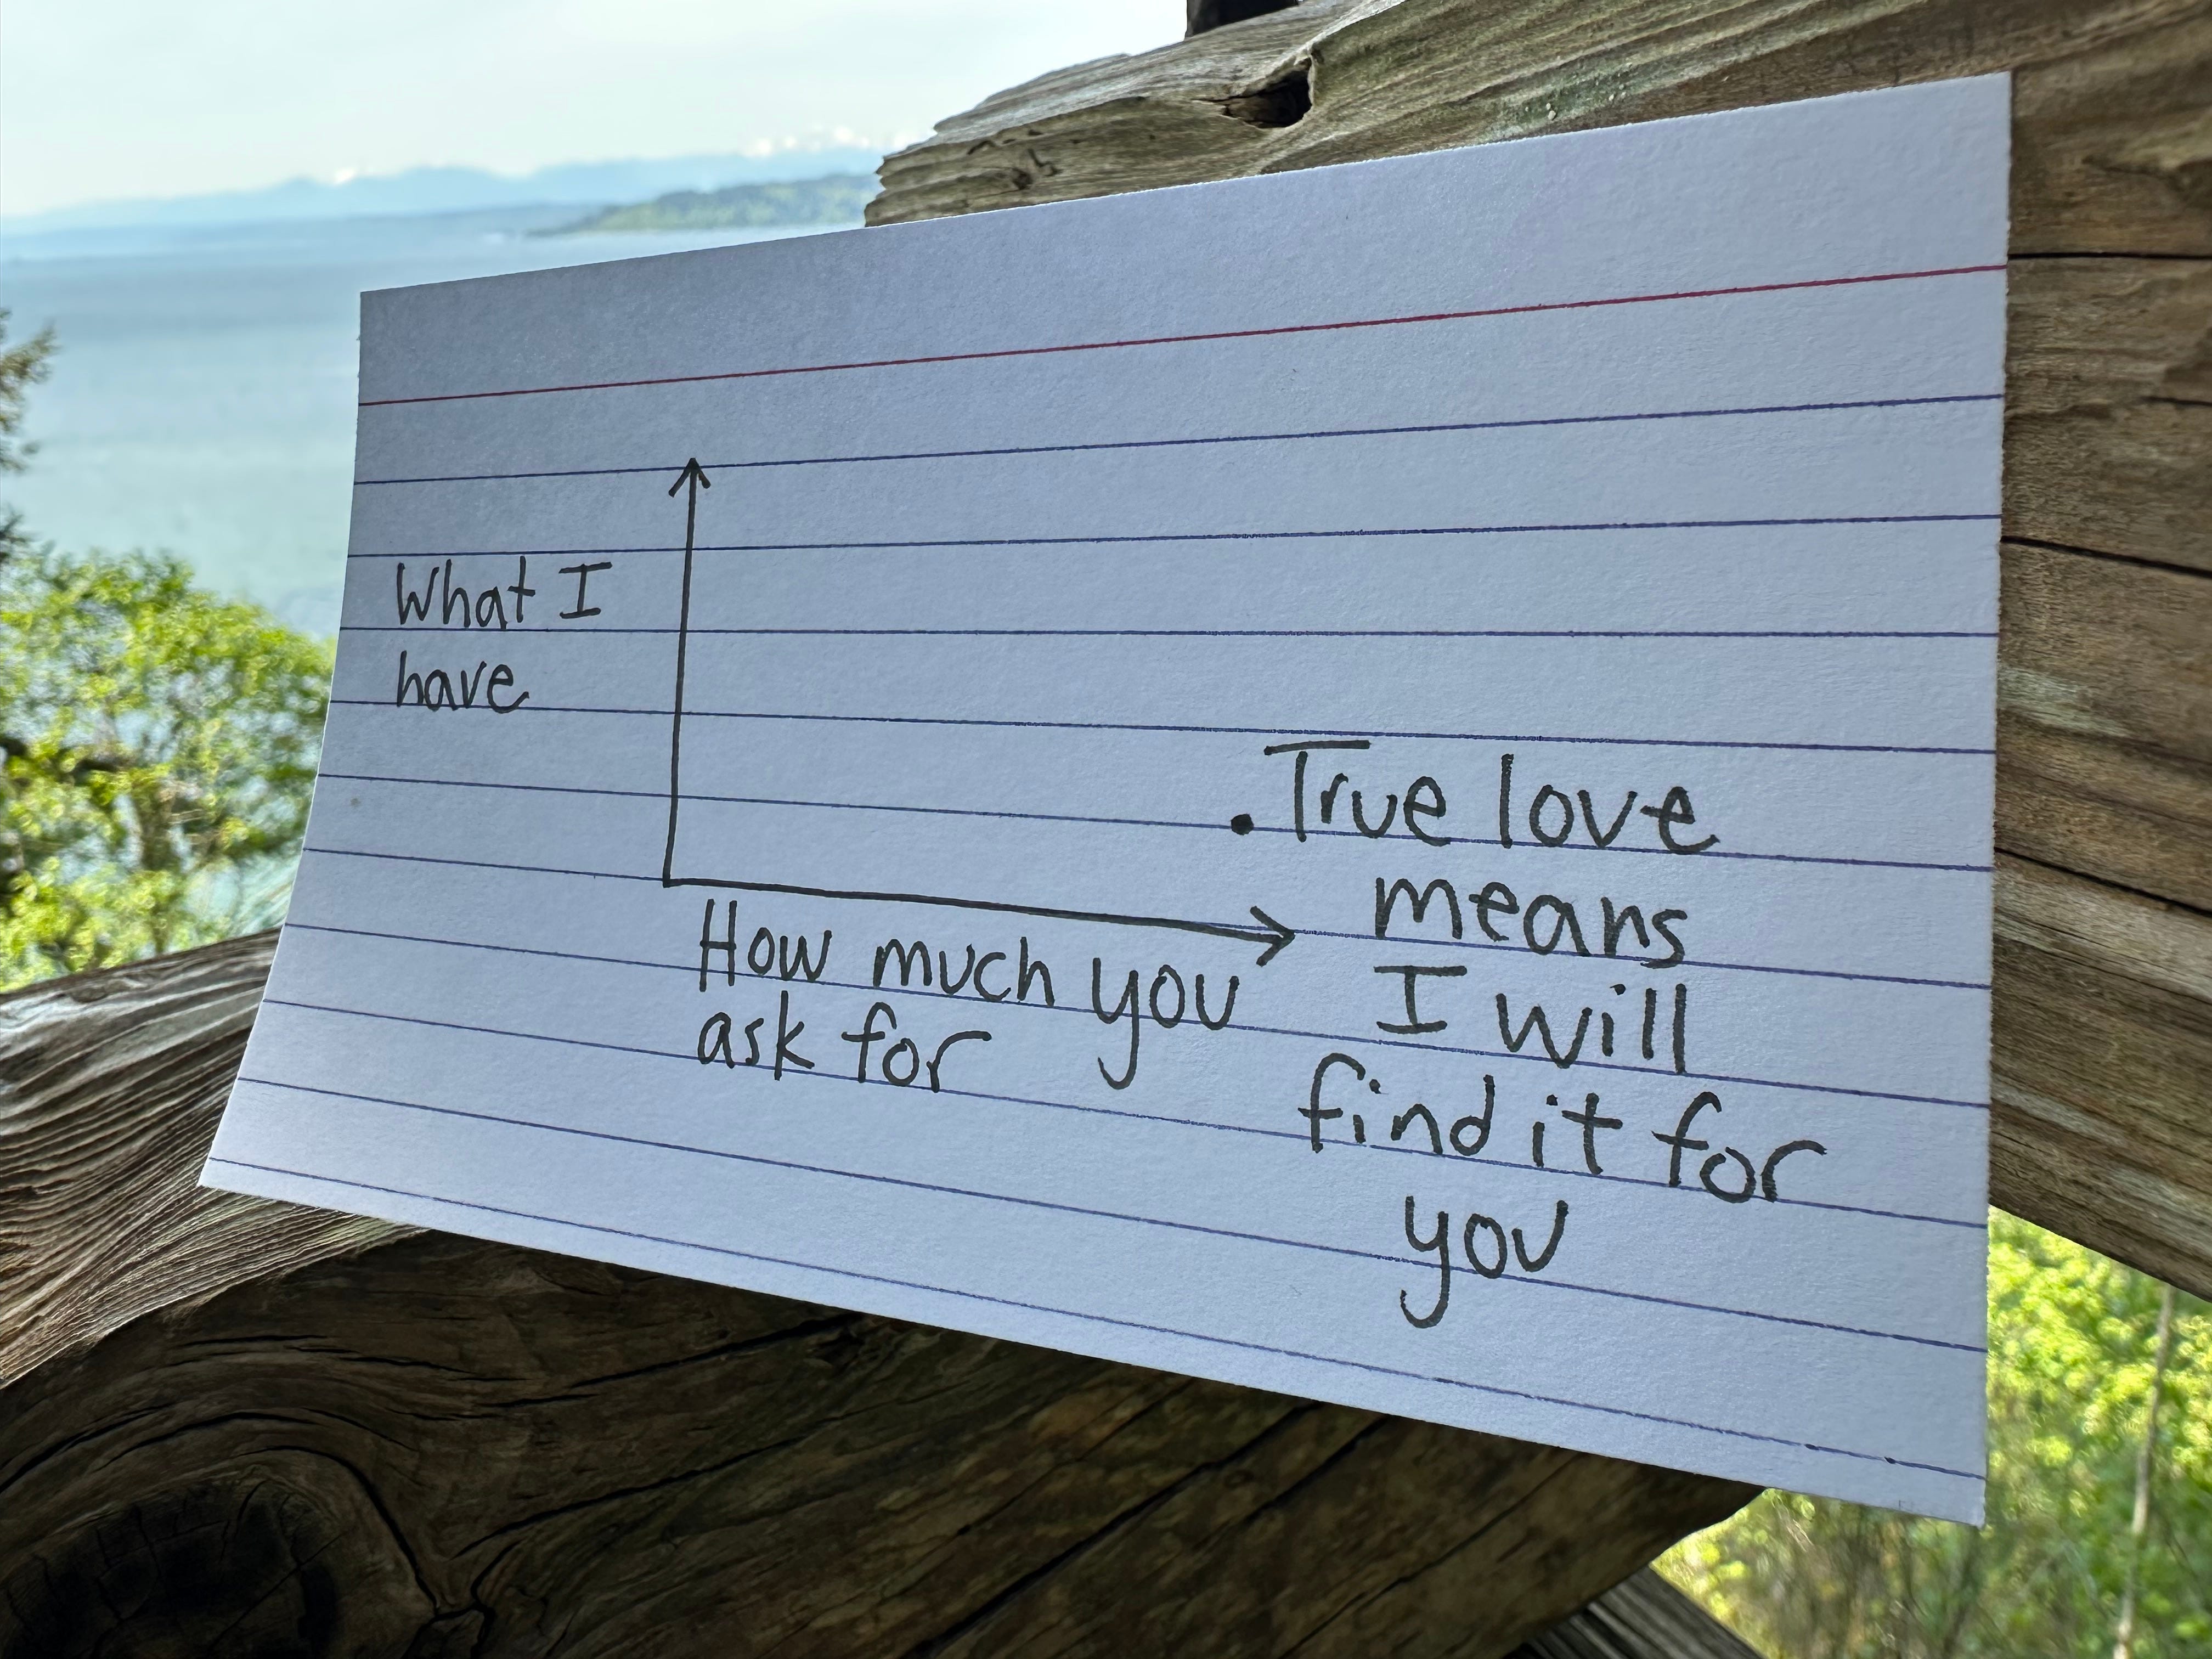 What I
have
How much you
ask for
. True love
means
I will
find it for
you